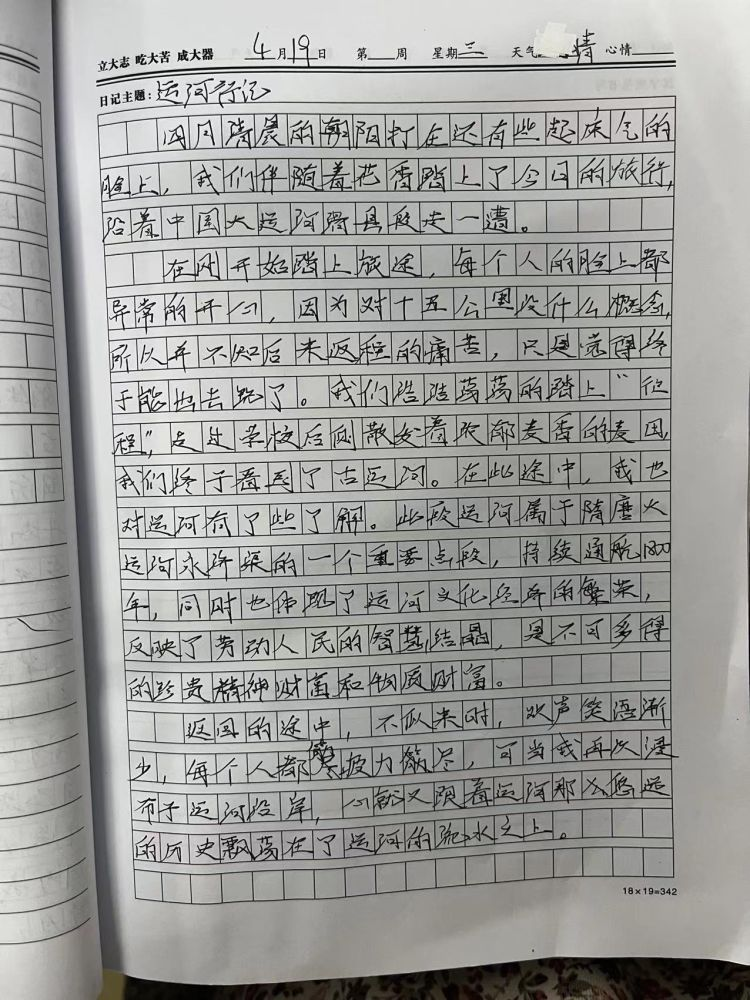 立大志 吃大苦 成大器 4月19日 第 周 星期三 天气 情 心情
日记主题：运河行记
四月清晨的朝阳打在还有些起床气的
脸上，我们伴随着花香踏上了今日的旅行，
沿着中国大运河滑县段走一遭。
在刚开始踏上旅途，每个人的脸上都
异常的开心，因为对十五公里没什么概念，
所以并不知后来返程的痛苦，只是觉得终
于能出去跑了。我们浩浩荡荡的踏上“征
程”，走过学校后侧散发着浓郁麦香的麦田，
我们终于看到了古运河。在此途中，我也
对运河有了些了解。此段运河属于隋唐大
运河永济渠的一个重要点段，持续通航1800
年，同时也体现了运河文化经济的繁荣，
反映了劳动人民的智慧结晶，是不可多得
的珍贵精神财富和物质财富。
返回的途中，不似来时，欢声笑语渐
少，每个人都疲力筋尽，可当我再次漫
布于运河沿岸，心就又跟着运河那么悠远
的历史飘荡在了运河的流水之上。
18×19=342